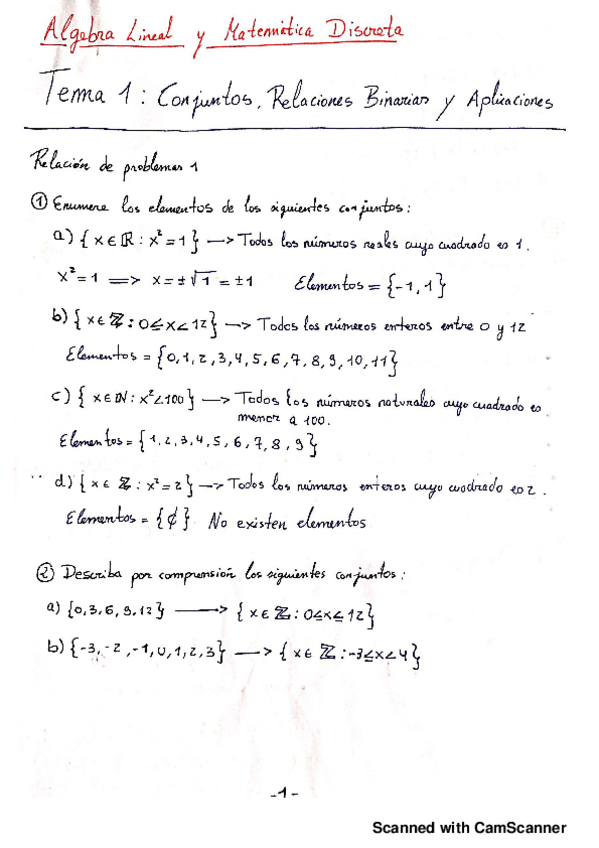 Algebra Lineal y Matemática Discreta
Tema 1: Conjuntos, Relaciones Binarias y Aplicaciones
Relación de problemas 1
① Enumere los elementos de los siguientes conjuntos:
a) { x ∈ ℝ : x² = 1 } —> Todos los números reales cuyo cuadrado es 1.
x² = 1 ==> x = ±√1 = ±1 Elementos = {-1, 1}
b) { x ∈ ℤ : 0 ≤ x < 12 } —> Todos los números enteros entre 0 y 12
Elementos = {0, 1, 2, 3, 4, 5, 6, 7, 8, 9, 10, 11}
c) { x ∈ ℕ : x² < 100 } —> Todos los números naturales cuyo cuadrado es
menor a 100.
Elementos = {1, 2, 3, 4, 5, 6, 7, 8, 9}
d) { x ∈ ℤ : x² = 2 } —> Todos los números enteros cuyo cuadrado es 2.
Elementos = {∅} No existen elementos
② Describa por comprensión los siguientes conjuntos:
a) {0, 3, 6, 9, 12} ——> { x ∈ ℤ : 0 ≤ x ≤ 12 }
b) {-3, -2, -1, 0, 1, 2, 3} —> { x ∈ ℤ : -3 ≤ x < 4 }
-1-
Scanned with CamScanner